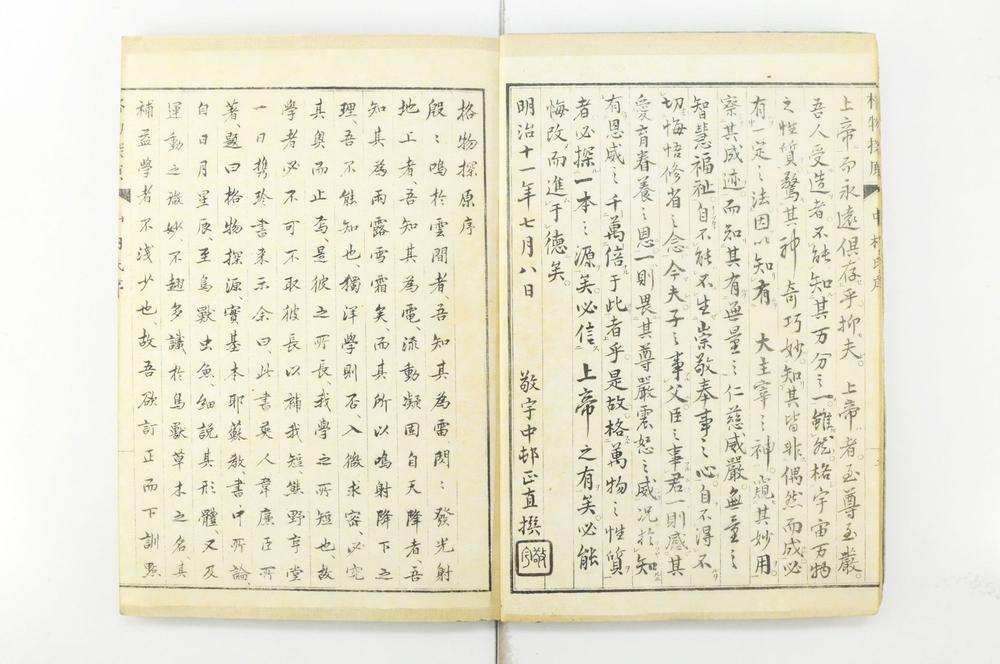 格物探原
中村氏序
上帝而永遠俱存乎抑夫。上帝者。至尊至嚴。
吾人受造者不能知其万分之一。雖然。格宇宙万物
之性質。驚其神奇巧妙。知其皆非偶然而成。必
有一定之法。因以知有 大主宰之神。窺其妙用
察其成迹而知其有無量之仁慈威嚴。無量之
智慧福祉。自不能不生崇敬奉事之心。自不得不
切悔悟修省之念。今夫子之事父。臣之事君。一則感其
愛育眷養之恩。一則畏其尊嚴震怒之威。况於知
有恩威之千萬倍于此者乎。是故格萬物之性質
者。必探一本之源矣。必信 上帝之有矣。必能
悔改。而進于德矣。
明治十一年七月八日 敬宇中邨正直撰
敬宇
格物探原序
殷〻鳴於雲間者、吾知其為雷、閃〻發光射
地上者、吾知其為電、流動凝固自天降者、吾
知其為雨露雪霜矣、而其所以鳴射降下之
理、吾不能知也、獨洋學則否、入微求容、必究
其奧而止焉、是彼之所長、我學之所短也、故
學者必不可不取彼長以補我短、熊野亨堂
一日携於書来示余曰、此書英人韋廉臣所
著、題曰格物探源、實基本耶蘇教、書中所論、
自日月星辰、至鳥獸虫魚、細說其形體、又及
運動之微妙、不趐多識於鳥獸草木之名、其
補益學者不淺少也、故吾欲訂正而下訓點